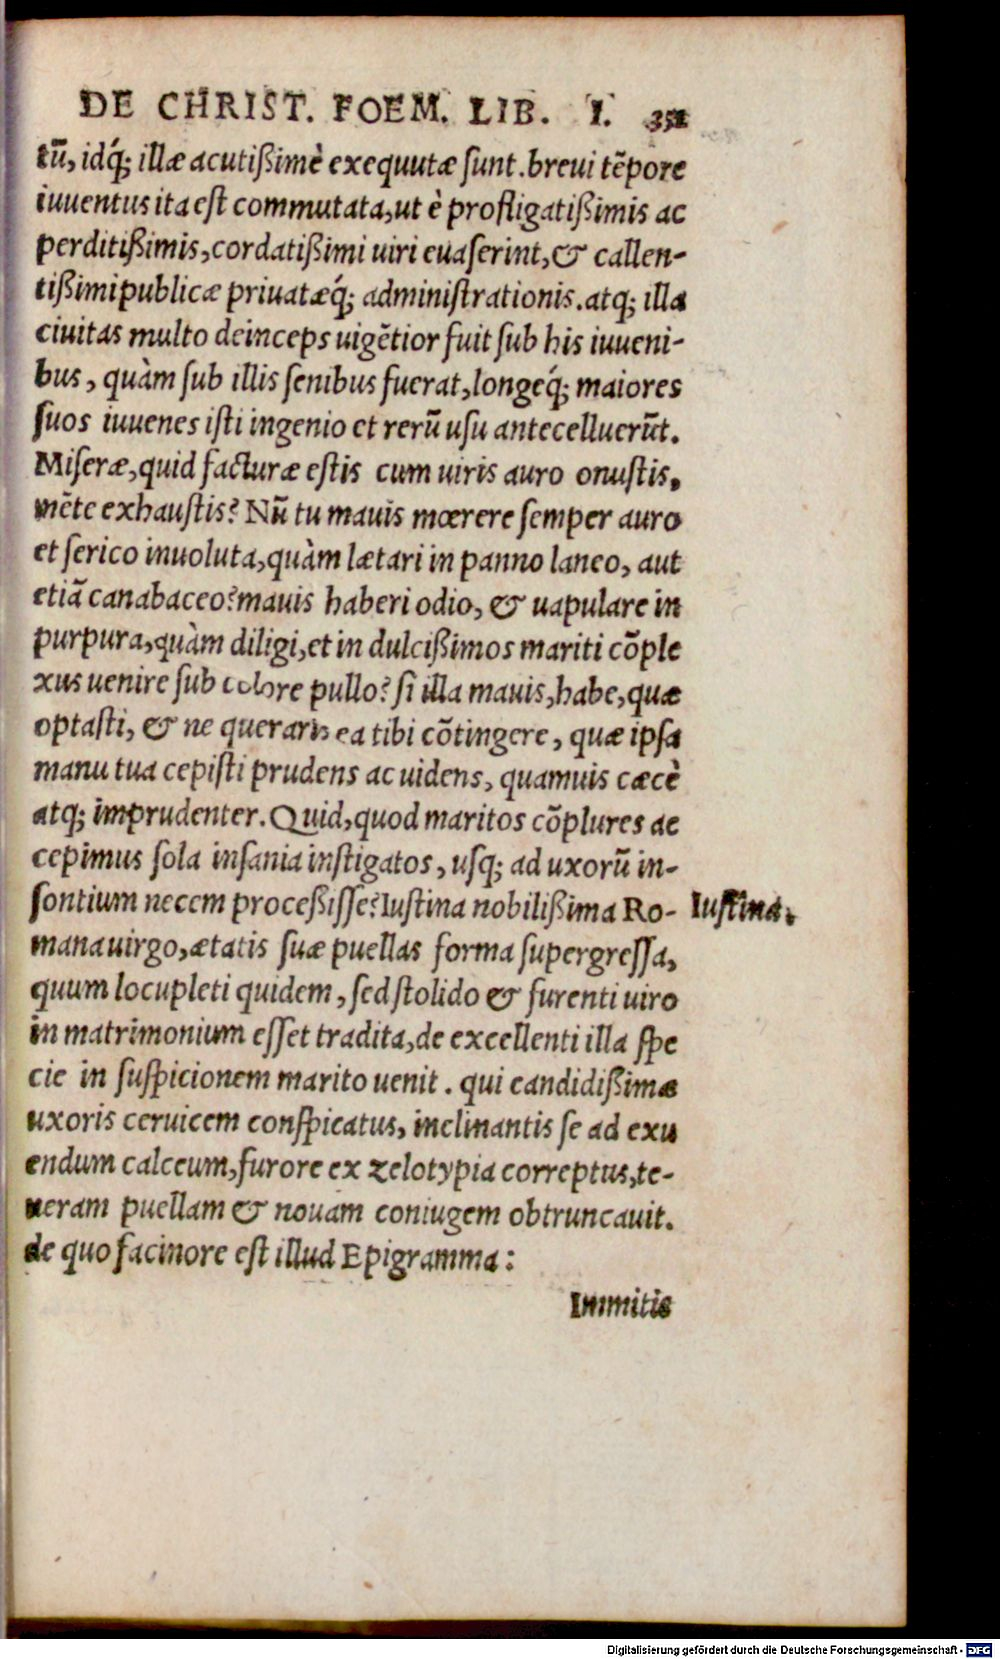 DE CHRIST. FOEM. LIB. I. 351
tū, idq́; illæ acutißimè exequutæ sunt. breui tēpore
iuuentus ita est commutata, ut è profligatißimis ac
perditißimis, cordatißimi uiri euaserint, & callen-
tißimi publicæ priuatæq́; administrationis. atq; illa
ciuitas multo deinceps uigētior fuit sub his iuueni-
bus, quàm sub illis senibus fuerat, longeq́; maiores
suos iuuenes isti ingenio et rerū usu antecelluerūt.
Miseræ, quid facturæ estis cum uiris auro onustis,
mēte exhaustis? Nū tu mauis mœrere semper auro
et serico inuoluta, quàm lætari in panno laneo, aut
etiā canabaceo? mauis haberi odio, & uapulare in
purpura, quàm diligi, et in dulcißimos mariti cōple
xus uenire sub colore pullo? si illa mauis, habe, quæ
optasti, & ne queraris ea tibi cōtingere, quæ ipsa
manu tua cepisti prudens ac uidens, quamuis cæcè
atq; imprudenter. Quid, quod maritos cōplures ac
cepimus sola insania instigatos, usq; ad uxorū in-
sontium necem proceßisse? Iustina nobilißima Ro-
Iustina.
mana uirgo, ætatis suæ puellas forma supergressa,
quum locupleti quidem, sed stolido & furenti uiro
in matrimonium esset tradita, de excellenti illa spe
cie in suspicionem marito uenit. qui candidißimæ
uxoris ceruicem conspicatus, inclinantis se ad exu
endum calceum, furore ex zelotypia correptus, te-
neram puellam & nouam coniugem obtruncauit.
de quo facinore est illud Epigramma:
Immitis
Digitalisierung gefördert durch die Deutsche Forschungsgemeinschaft - DFG